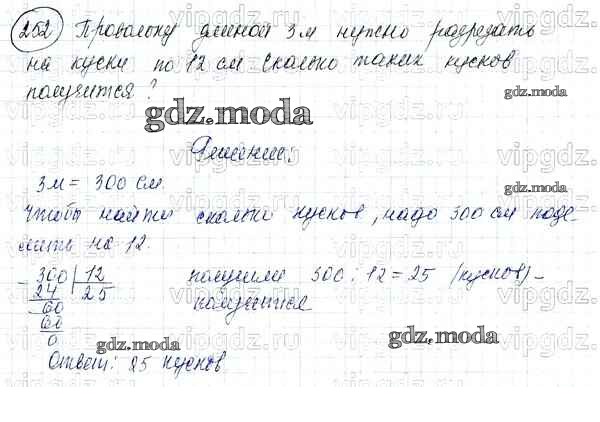 252 Проволоку длиной 3 м нужно разрезать
на куски по 12 см Сколько таких кусков
получится?
gdz.moda
gdz.moda
Решение:
3м = 300 см.
gdz.moda
Чтобы найти сколько кусков, надо 300 см поде-
лить на 12.
300 12 получили 300 : 12 = 25 (кусков) -
24 25 получится
60
60
0
gdz.moda
gdz.moda
Ответ: 25 кусков